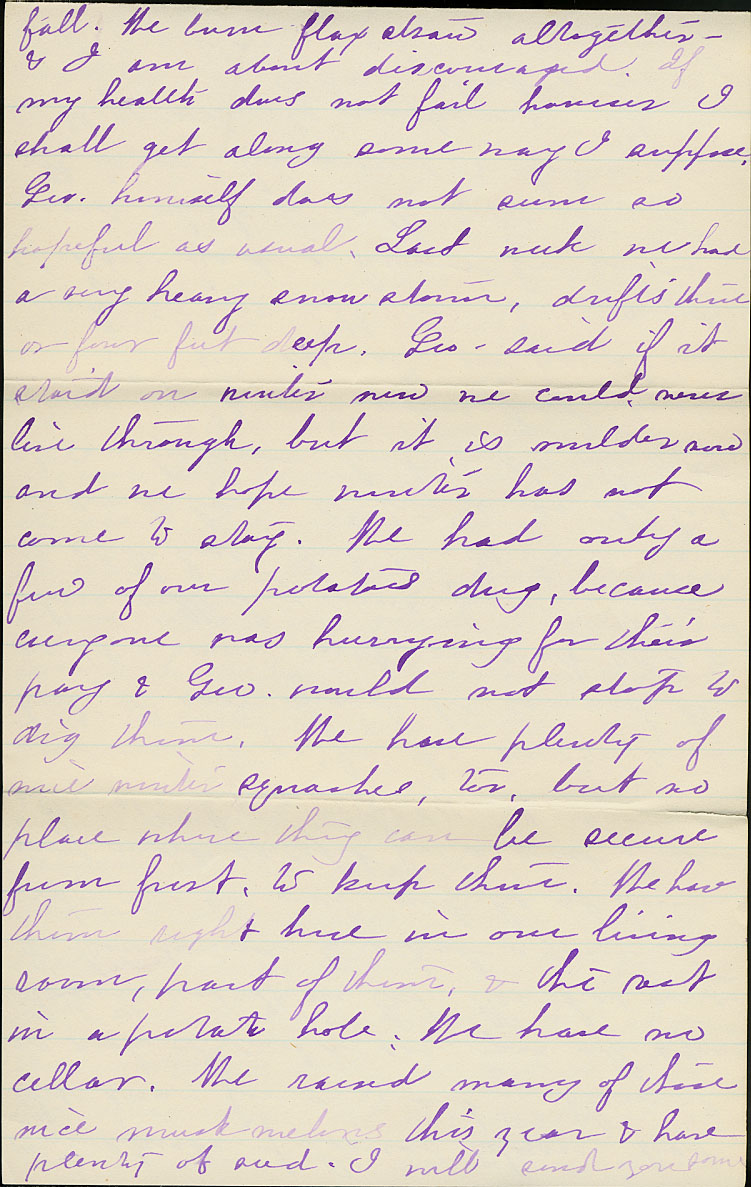 fall. We burn flax straw altogether -
& I am about discouraged. If
my health does not fail however I
shall get along some way I suppose.
Geo. himself does not seem so
hopeful as usual. Last week we had
a very heavy snow storm, drifts three
or four feet deep. Geo - said if it
staid on winter now we could never
live through, but it is milder now
and we hope winter has not
come to stay. We had only a
few of our potatoes dug, because
everyone was hurrying for their
pay & Geo. would not stop to
dig them. We have plenty of
nice winter squashes, too, but no
place where they can be secure
from frost, to keep them. We have
them right here in our living
room, part of them, & the rest
in a potato hole. We have no
cellar. We raised many of those
nice musk melons this year & have
plenty of seed. I will send you some